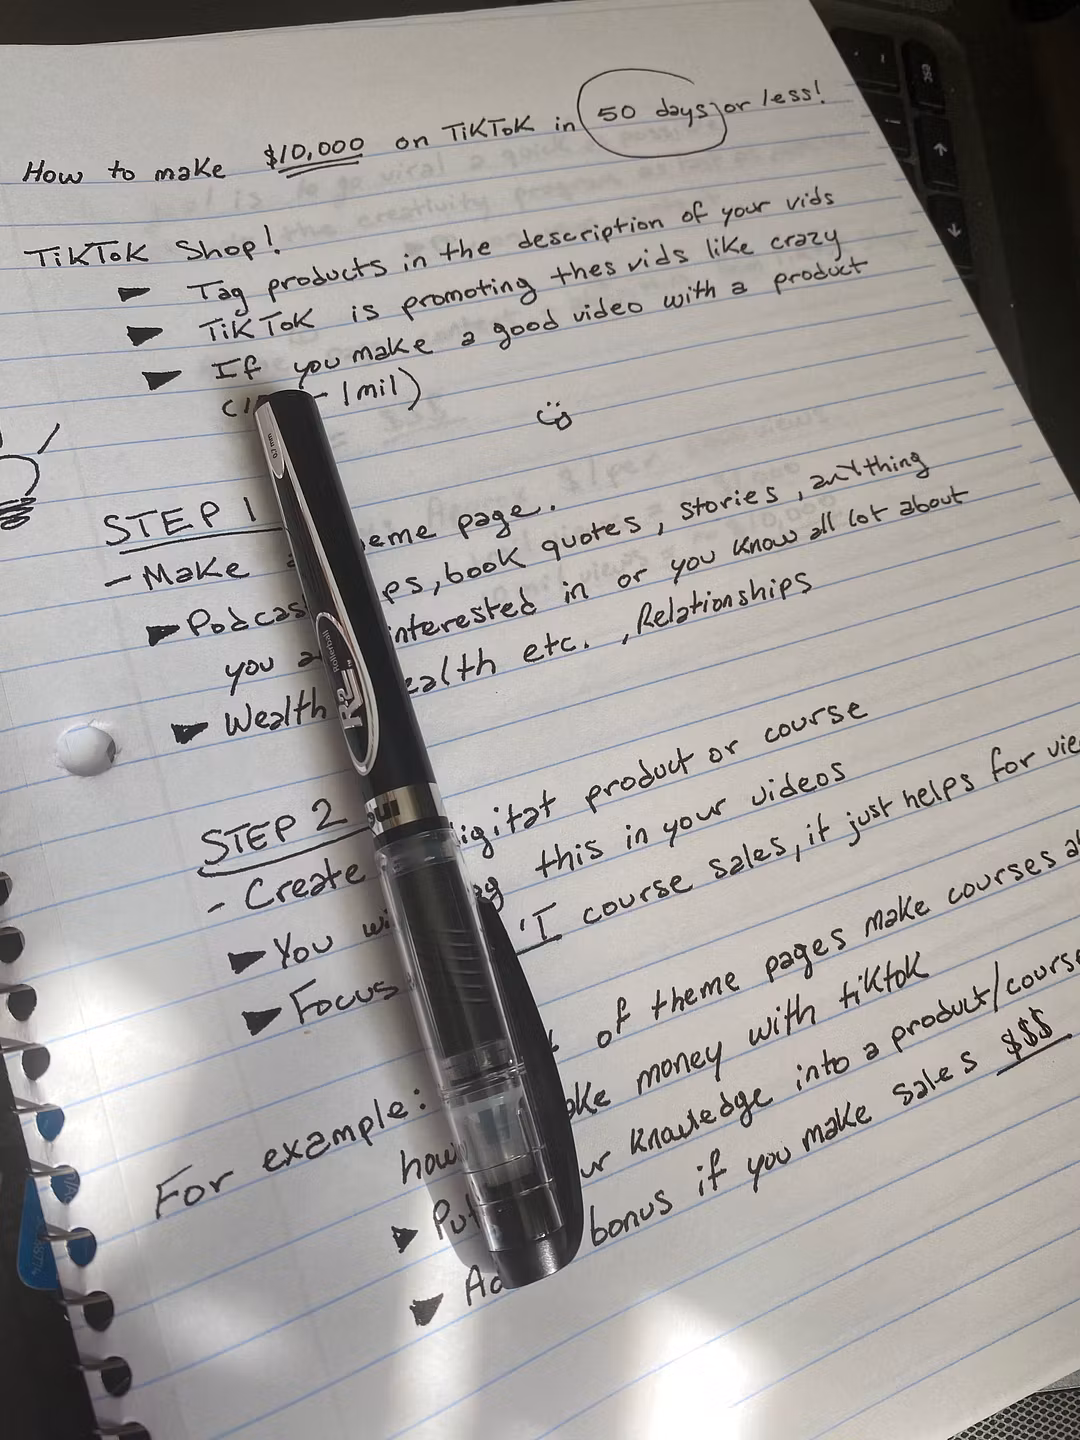 How to make $10,000 on TikTok in 50 days or less!
TikTok Shop!
Tag products in the description of your vids
TikTok is promoting thes vids like crazy
If you make a good video with a product
- 1mil)
STEP 1
- Make eme page.
Podcas ps, book quotes, stories, anything
you a interested in or you know all lot about
Wealth ealth etc., Relationships
STEP 2
- Create igital product or course
You wi this in your videos
Focus course sales, it just helps for vie
For example: of theme pages make courses a
how ake money with tiktok
Put ur knowledge into a product/course
Ad bonus if you make sales $$$
0.7 mm
Rollerball